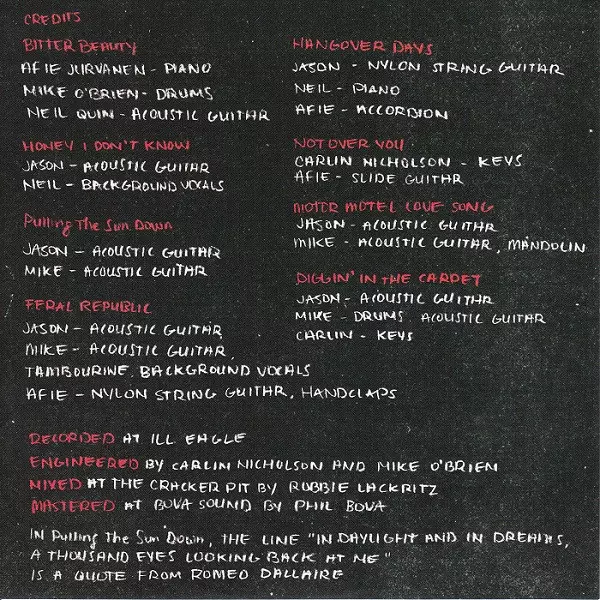 CREDITS
BITTER BEAUTY
AFIE JURVANEN - PIANO
MIKE O'BRIEN - DRUMS
NEIL QUIN - ACOUSTIC GUITAR
HONEY I DON'T KNOW
JASON - ACOUSTIC GUITAR
NEIL - BACKGROUND VOCALS
Pulling The Sun Down
JASON - ACOUSTIC GUITAR
MIKE - ACOUSTIC GUITAR
FERAL REPUBLIC
JASON - ACOUSTIC GUITAR
MIKE - ACOUSTIC GUITAR,
TAMBOURINE, BACKGROUND VOCALS
AFIE - NYLON STRING GUITAR, HANDCLAPS
HANGOVER DAYS
JASON - NYLON STRING GUITAR
NEIL - PIANO
AFIE - ACCORDION
NOT OVER YOU
CARLIN NICHOLSON - KEYS
AFIE - SLIDE GUITAR
MOTOR MOTEL LOVE SONG
JASON - ACOUSTIC GUITAR
MIKE - ACOUSTIC GUITAR, MANDOLIN
DIGGIN' IN THE CARPET
JASON - ACOUSTIC GUITAR
MIKE - DRUMS, ACOUSTIC GUITAR
CARLIN - KEYS
RECORDED AT ILL EAGLE
ENGINEERED BY CARLIN NICHOLSON AND MIKE O'BRIEN
MIXED AT THE CRACKER PIT BY ROBBIE LACKRITZ
MASTERED AT BOVA SOUND BY PHIL BOVA
IN Pulling The Sun Down, THE LINE "IN DAYLIGHT AND IN DREAMS,
A THOUSAND EYES LOOKING BACK AT ME"
IS A QUOTE FROM ROMEO DALLAIRE